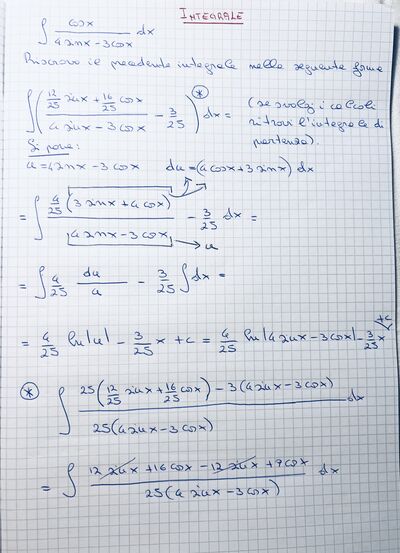 INTEGRALE
∫ cosx / (4 sinx - 3 cosx) dx
Riscrivo il precedente integrale nella seguente forma
∫ ( (12/25 sinx + 16/25 cosx) / (4 sinx - 3 cosx) - 3/25 )^* dx = (se svolgi i calcoli
ritrovi l'integrale di
partenza).
Si pone:
u = 4 sinx - 3 cosx du = (4 cosx + 3 sinx) dx
= ∫ 4/25 (3 sinx + 4 cosx) / (4 sinx - 3 cosx) - 3/25 dx =
→ u
= ∫ 4/25 du/u - 3/25 ∫ dx =
= 4/25 ln|u| - 3/25 x + c = 4/25 ln|4 sinx - 3 cosx| - 3/25 x + c
* ∫ (25 (12/25 sinx + 16/25 cosx) - 3 (4 sinx - 3 cosx)) / (25 (4 sinx - 3 cosx)) dx
= ∫ (12 sinx + 16 cosx - 12 sinx + 9 cosx) / (25 (4 sinx - 3 cosx)) dx